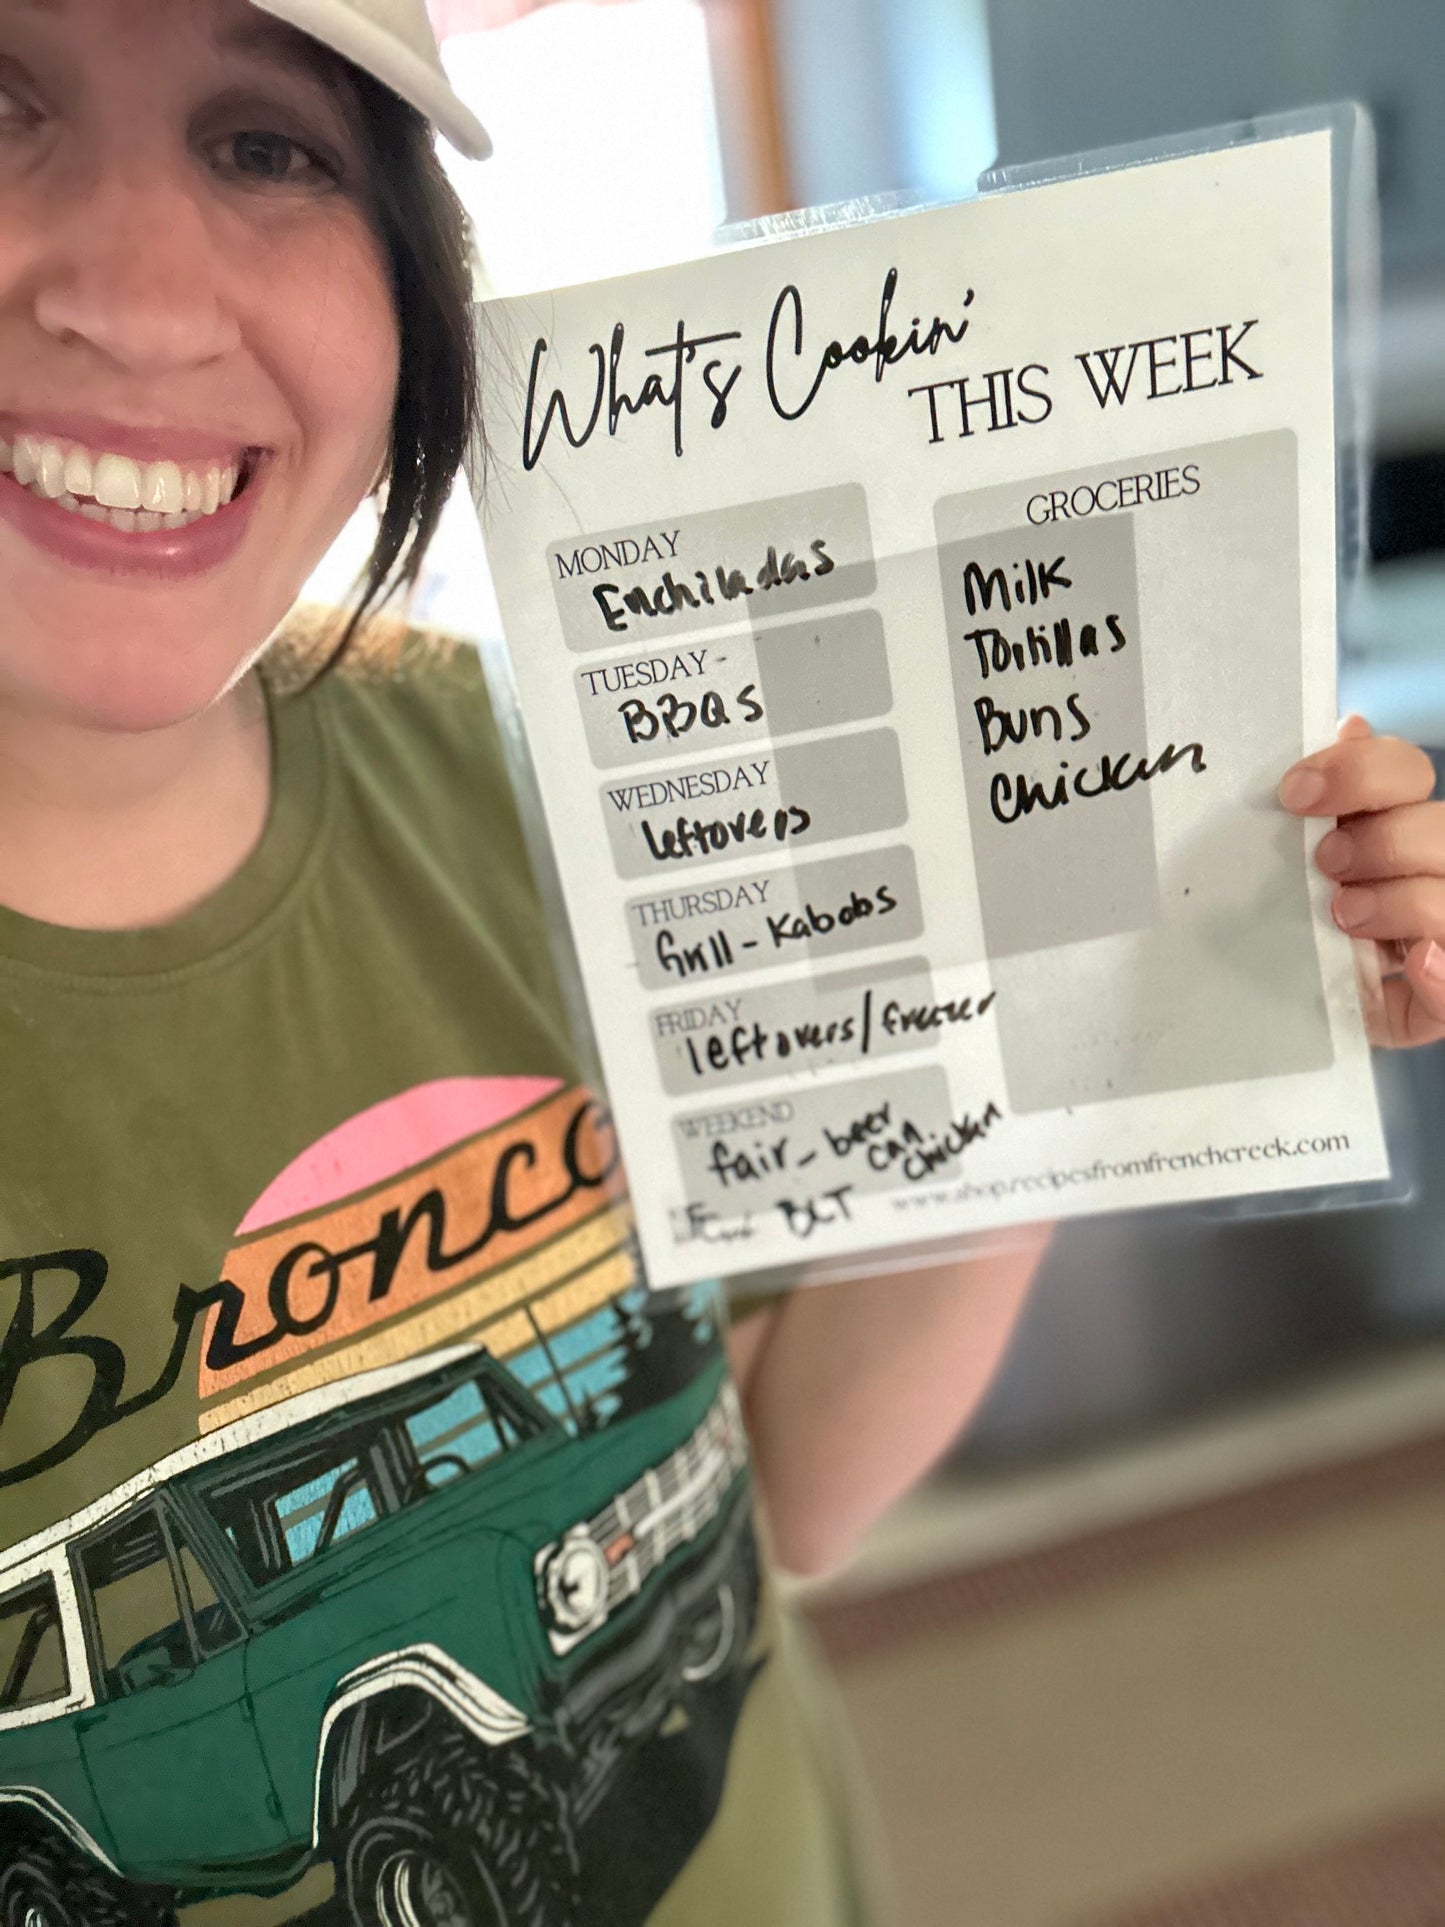 What's Cookin'
THIS WEEK
MONDAY
Enchiladas
TUESDAY -
BBQS
WEDNESDAY
leftovers
THURSDAY
Grill - Kabobs
FRIDAY
leftovers/freezer
WEEKEND
fair - beer
can
chicken
BLT
GROCERIES
Milk
Tortillas
Buns
Chicken
www.shop.recipesfromfrenchcreek.com
Bronco